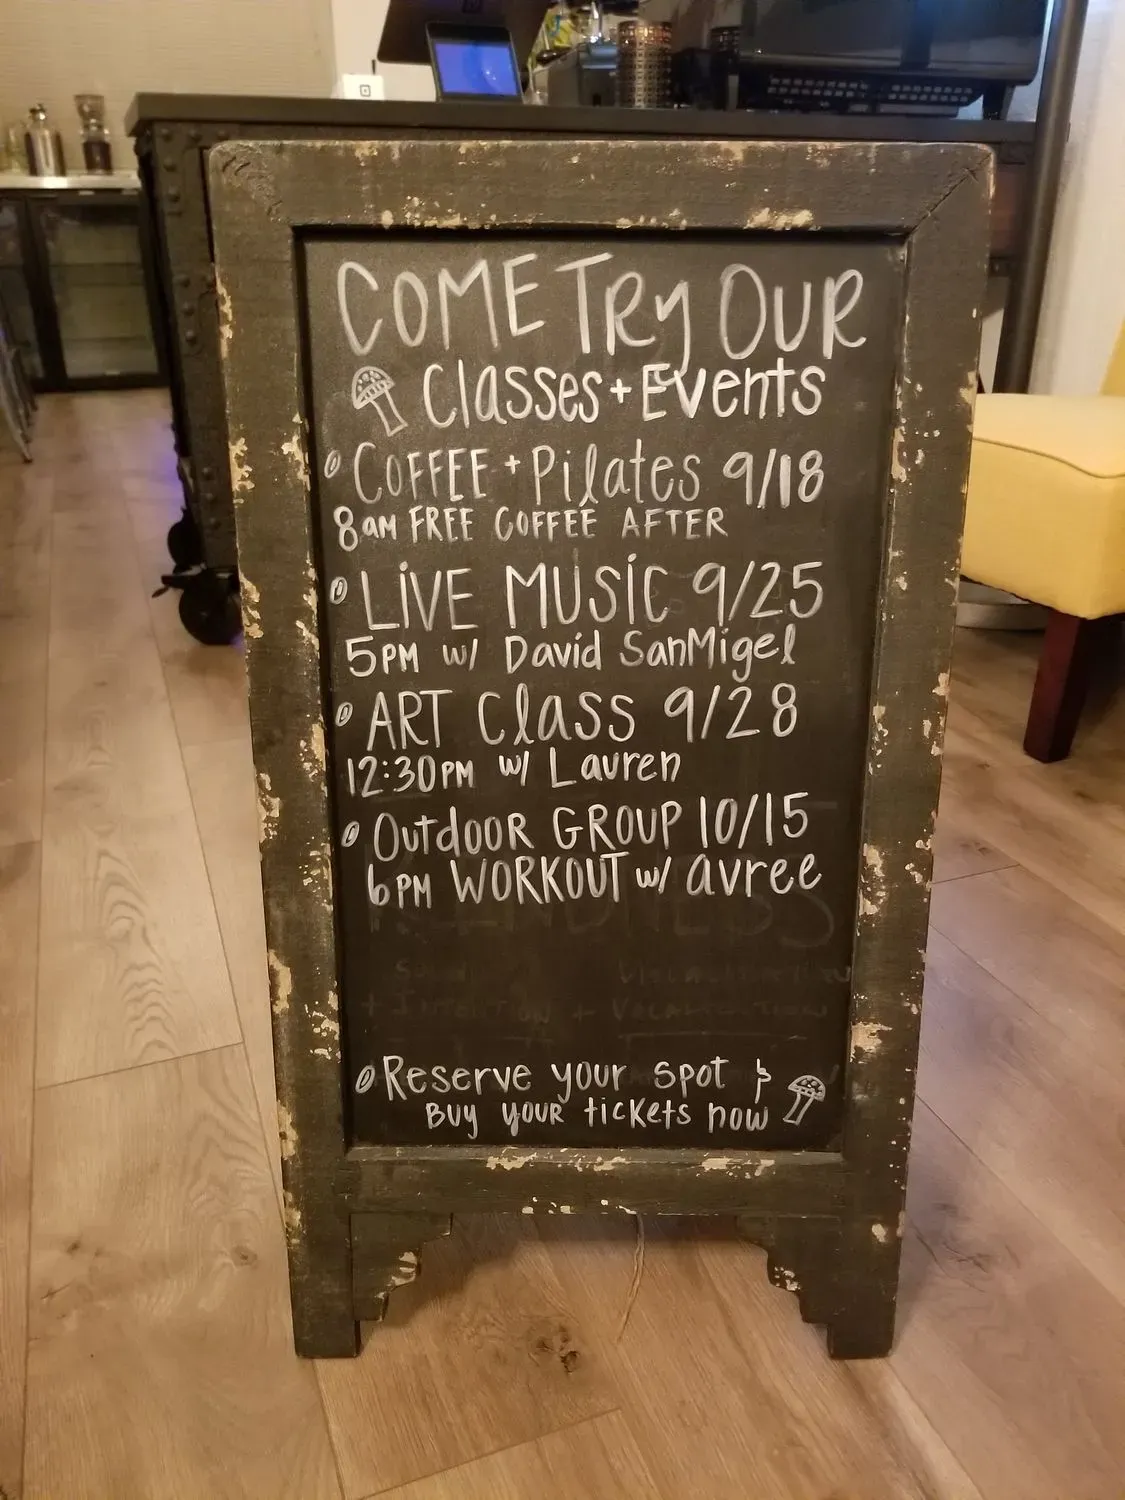 COME TRY OUR
Classes + Events
COFFEE + Pilates 9/18
8am FREE COFFEE AFTER
LIVE MUSIC 9/25
5PM w/ David SanMigel
ART Class 9/28
12:30PM w/ Lauren
Outdoor GROUP 10/15
6PM WORKOUT w/ avree
Reserve your spot &
Buy your tickets now